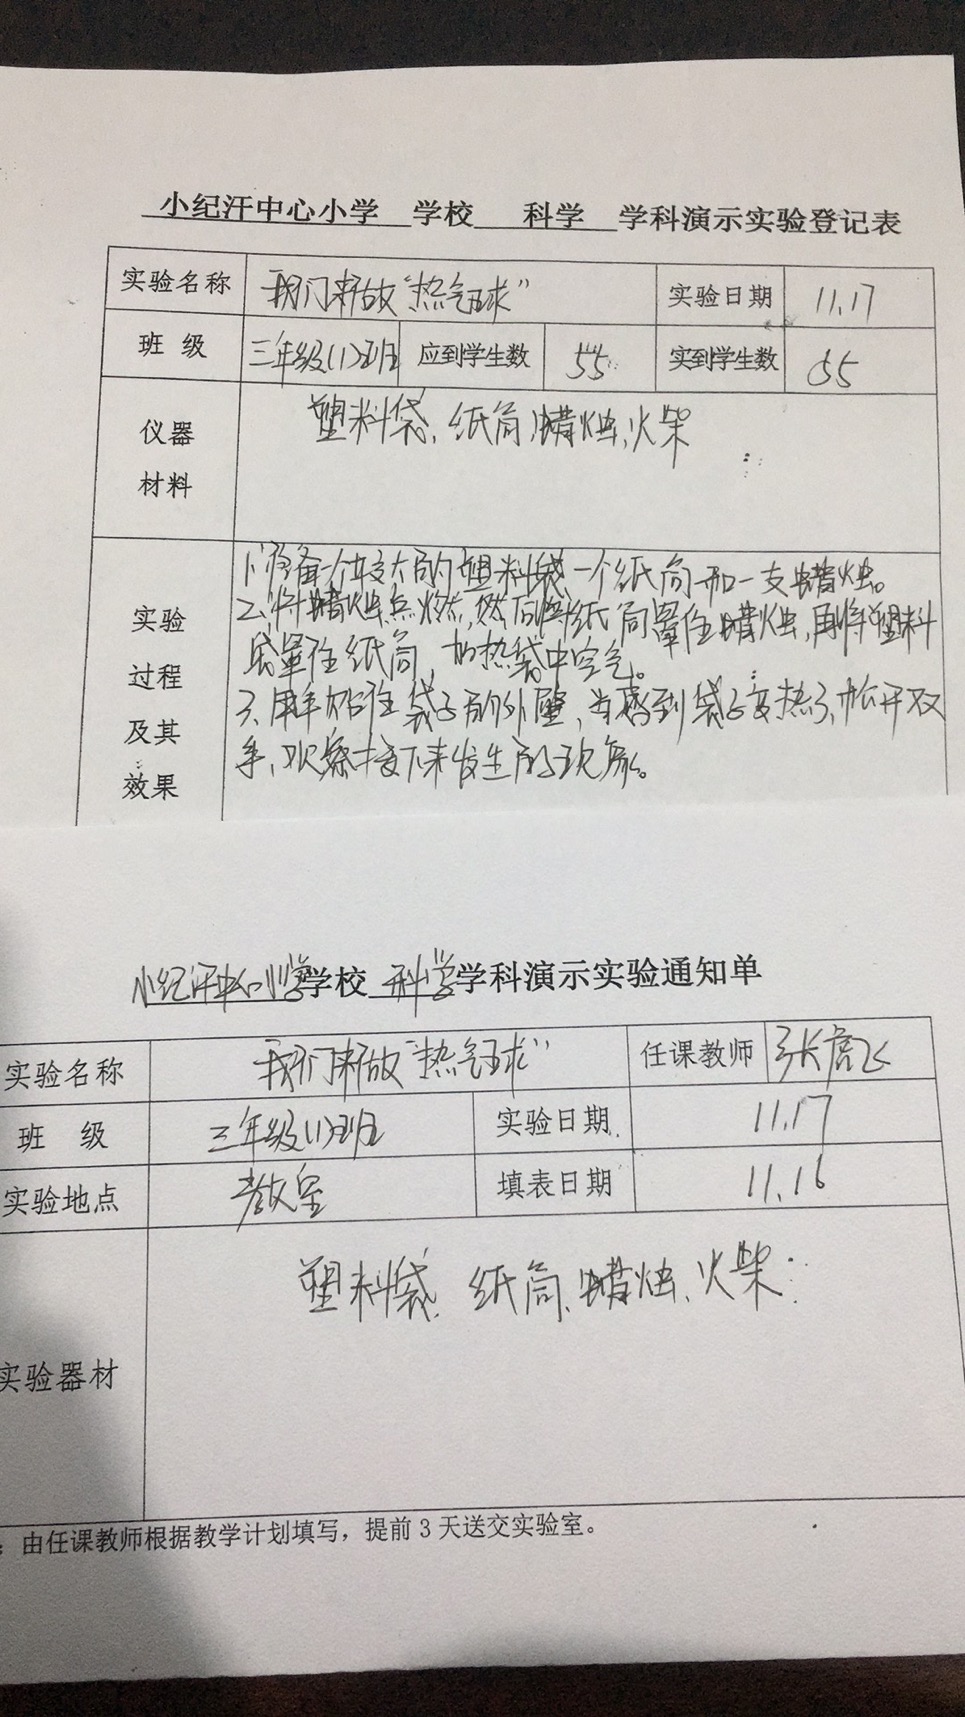 小纪汗中心小学 学校 科学 学科演示实验登记表
实验名称 我们来做“热气球” 实验日期 11.17
班 级 三年级(1)班 应到学生数 55 实到学生数 55
仪器 塑料袋、纸筒、蜡烛、火柴
材料
1、准备一个较大的塑料袋一个纸筒和一支蜡烛。
实验 2、将蜡烛点燃,然后用纸筒罩住蜡烛,再将塑料
过程 袋罩住纸筒,加热袋中空气。
及其 3、用手贴住袋子的外壁,当感到袋子变热了,松开双
效果 手,观察接下来发生的现象。
小纪汗中心小学学校 科学 学科演示实验通知单
实验名称 我们来做“热气球” 任课教师 张虎飞
班 级 三年级(1)班 实验日期 11.17
实验地点 教室 填表日期 11.16
塑料袋、纸筒、蜡烛、火柴
实验器材
：由任课教师根据教学计划填写，提前3天送交实验室。